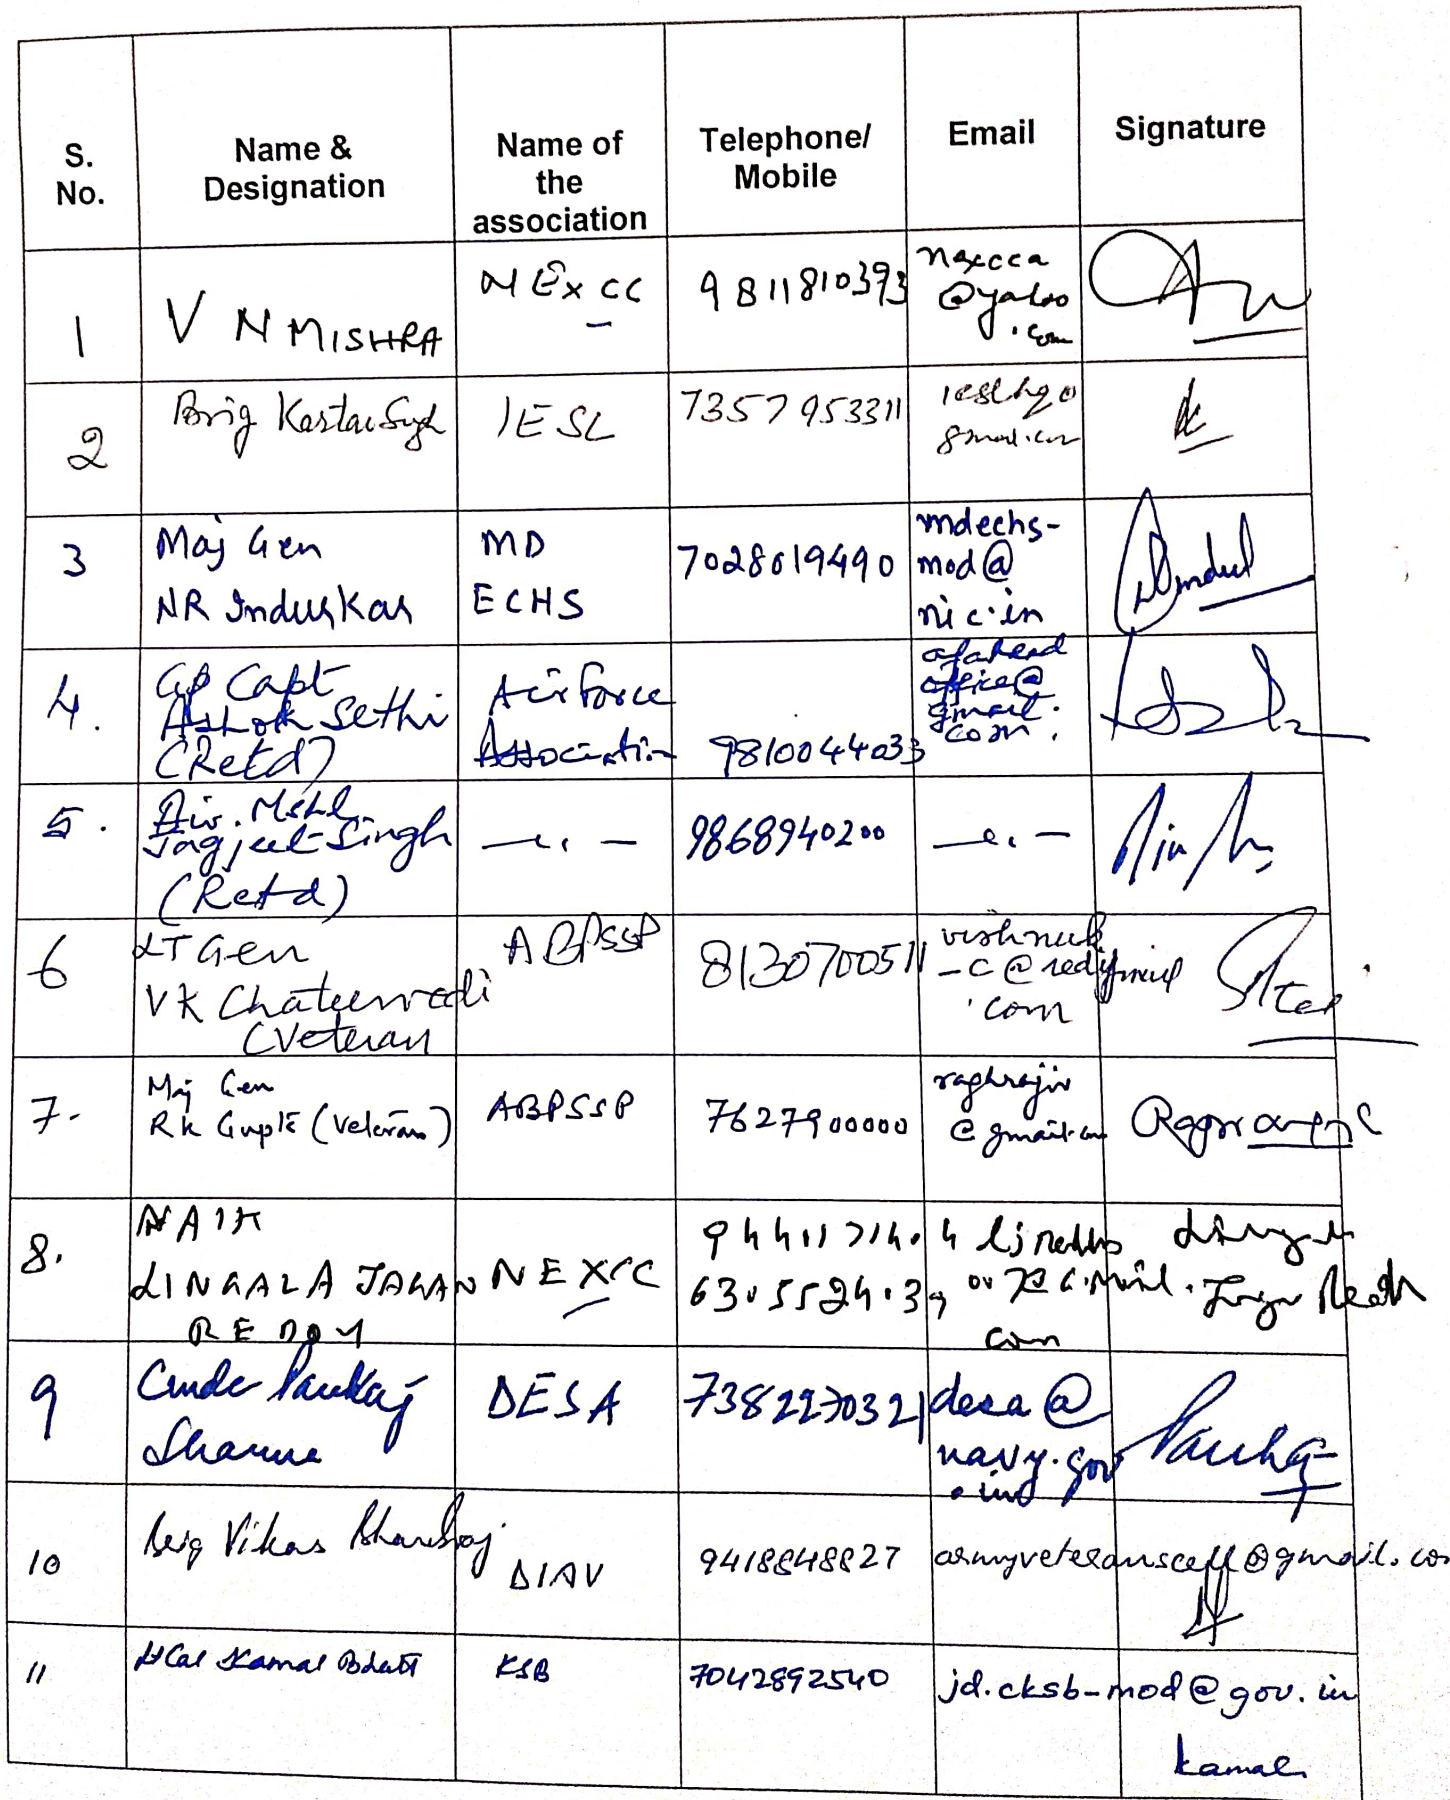 S. No.
Name & Designation
Name of the association
Telephone/ Mobile
Email
Signature
1
V N MISHRA
NExCC
9811810393
nexcca
@yahoo
.com
2
Brig Kartar Singh
IESL
7357953311
gmail.com
3
Maj Gen
NR Indurkar
MD
ECHS
7028019490
mdechs-
mod@
nic.in
4.
Gp Capt
Ashok Sethi
(Retd)
Air Force
Association
9810044033
afahead
office@
gmail.
com.
5.
Air. Mshl
Jagjeet Singh
(Retd)
9868940200
6
LT Gen
VK Chaturvedi
(Veteran
ABPSSP
8130700511
-c@rediffmail
.com
7.
Maj Gen
RK Gupta (Veteran)
ABPSSP
7627900000
raghrajiv
@gmail.com
8.
NAIK
LINGALA JAGAN
REDDY
NEXCC
com
9
Cmde Pankaj
Sharma
DESA
7382270321
desa@
navy.gov
.in
Pankaj
10
Brig Vikas Bhardwaj
DIAV
9418848827
armyveteranscell@gmail.com
11
Lt Col Kamal Bhatt
KSB
7042892540
jd.cksb-mod@gov.in
Kamal